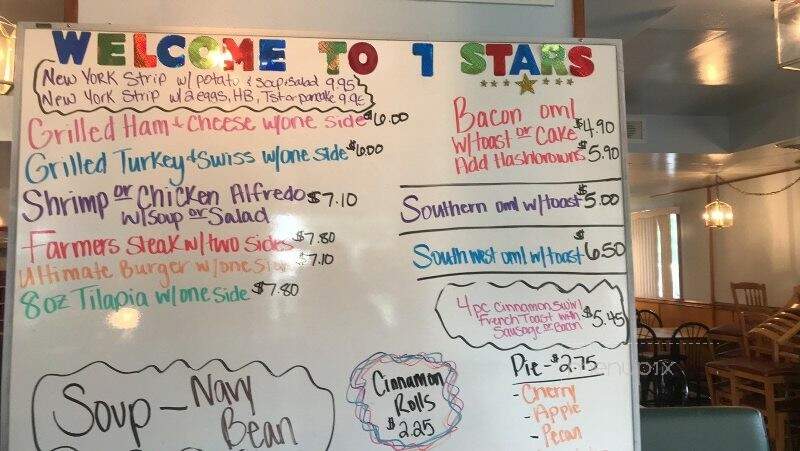 WELCOME TO 7 STARS
New York Strip w/ potato & soup & salad 9.95
New York Strip w/ 2 eggs, HB, Tst or pancake 9.95
Grilled Ham & Cheese w/one side $6.00
Grilled Turkey & Swiss w/one side $6.00
Shrimp or Chicken Alfredo $7.10
w/soup or Salad
Farmers Steak w/two sides $7.80
Ultimate Burger w/one side $7.10
8oz Tilapia w/one side $7.80
Soup - Navy
Bean
Cinnamon
Rolls
$2.25
Bacon oml
w/toast or Cake $4.90
Add Hashbrowns $5.90
Southern oml w/toast $5.00
Southwest oml w/toast $6.50
4 pc Cinnamon Swirl
French Toast with
Sausage or Bacon $5.45
Pie - $2.75
- Cherry
- Apple
- Pecan